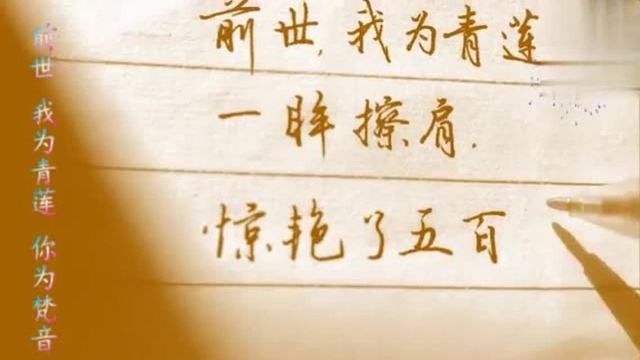 前世,我为青莲
一眸擦肩.
惊艳了五百
前世 我为青莲 你为梵音